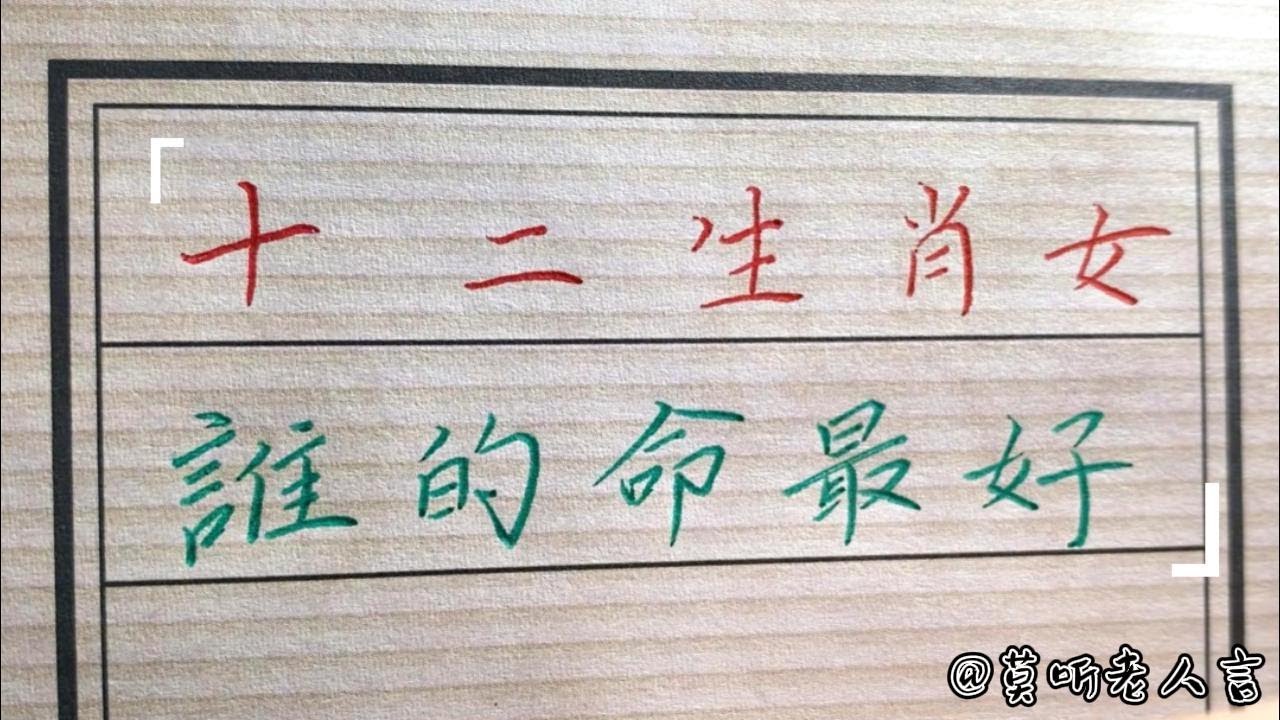 「十二生肖女
誰的命最好」
@莫听老人言